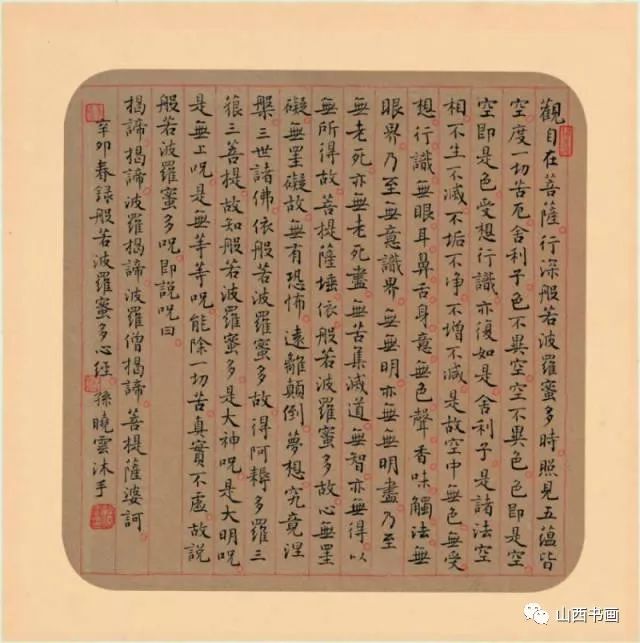 觀自在菩薩行深般若波羅蜜多時照見五蘊皆
空度一切苦厄舍利子色不異空空不異色色即是空
空即是色受想行識亦復如是舍利子是諸法空
相不生不滅不垢不净不增不減是故空中無色無受
想行識無眼耳鼻舌身意無色聲香味觸法無
眼界乃至無意識界無無明亦無無明盡乃至
無老死亦無老死盡無苦集滅道無智亦無得以
無所得故菩提薩埵依般若波羅蜜多故心無罣
礙無罣礙故無有恐怖遠離顛倒夢想究竟涅
槃三世諸佛依般若波羅蜜多故得阿耨多羅三
藐三菩提故知般若波羅蜜多是大神呪是大明呪
是無上呪是無等等呪能除一切苦真實不虛故說
般若波羅蜜多呪即說呪曰
揭諦揭諦波羅揭諦波羅僧揭諦菩提薩婆訶
辛卯春録般若波羅蜜多心經孫曉雲沐手
山西书画